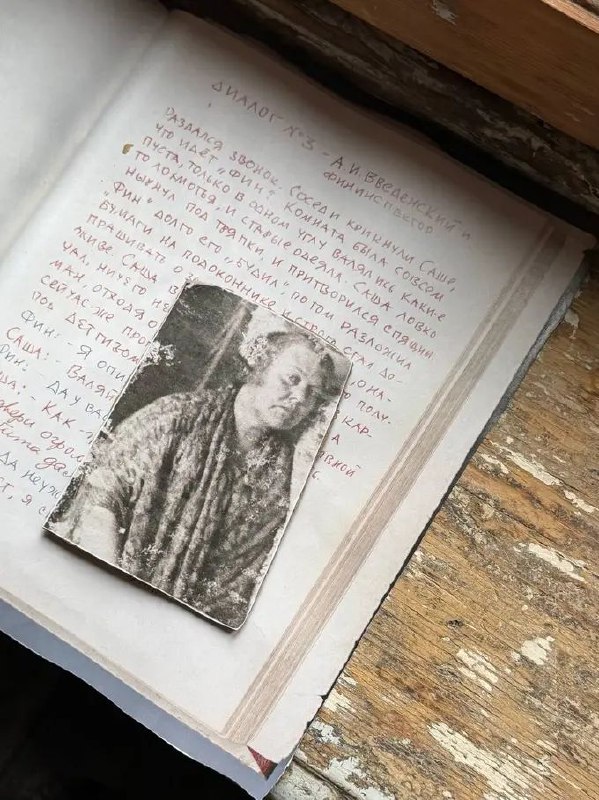 ДИАЛОГ №3 - А.И. ВВЕДЕНСКИЙ И
ФИНИНСПЕКТОР
РАЗДАЛСЯ ЗВОНОК. СОСЕДИ КРИКНУЛИ САШЕ,
ЧТО ИДЁТ „ФИН". КОМНАТА БЫЛА СОВСЕМ
ПУСТА, ТОЛЬКО В ОДНОМ УГЛУ ВАЛЯЛИСЬ КАКИЕ-
ТО ЛОХМОТЬЯ, И СТАРЫЕ ОДЕЯЛА. САША ЛОВКО
НЫРНУЛ ПОД ТРЯПКИ, И ПРИТВОРИЛСЯ СПЯЩИМ
„ФИН" ДОЛГО ЕГО „БУДИЛ", ПОТОМ РАЗЛОЖИЛ
БУМАГИ НА ПОДОКОННИКЕ И СТРОГО СТАЛ ДО-
ПРАШИВАТЬ О
ЖИВЕ. САША В ЛОНА-
ЧАЛ. НИЧЕГО НЕ ПОЛУ.
МАН, ОТХОДЯ О КАР-
СЕЙЧАС ЖЕ ПРО А
ПОД ДЕТГИЗОМ ВНОЙ
ФИН: - Я ОПИ
САША: - ВАЛЯЙ
ФИН: - ДА У ВА
САША: - КАК
ДА НЕУЖ
Я С